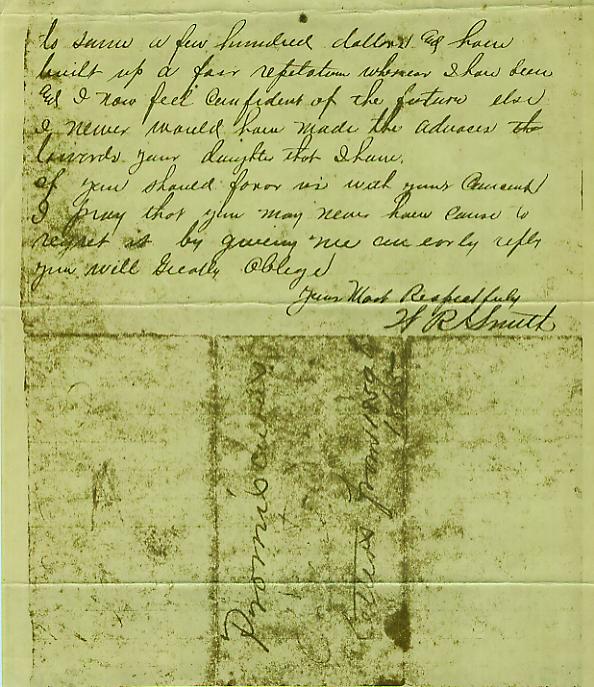 to some a few hundred dollars and have
built up a fair repetation whereever I have been
and I now feel Confident of the future else
I never would have made the advaces to
towords your daughter that I have.
if you should favor us with your Concent
I pray that you may never have cause to
regret it by giveing me an early reply
you will Greatly Oblege
Yours Most Respectfully
W R Smith